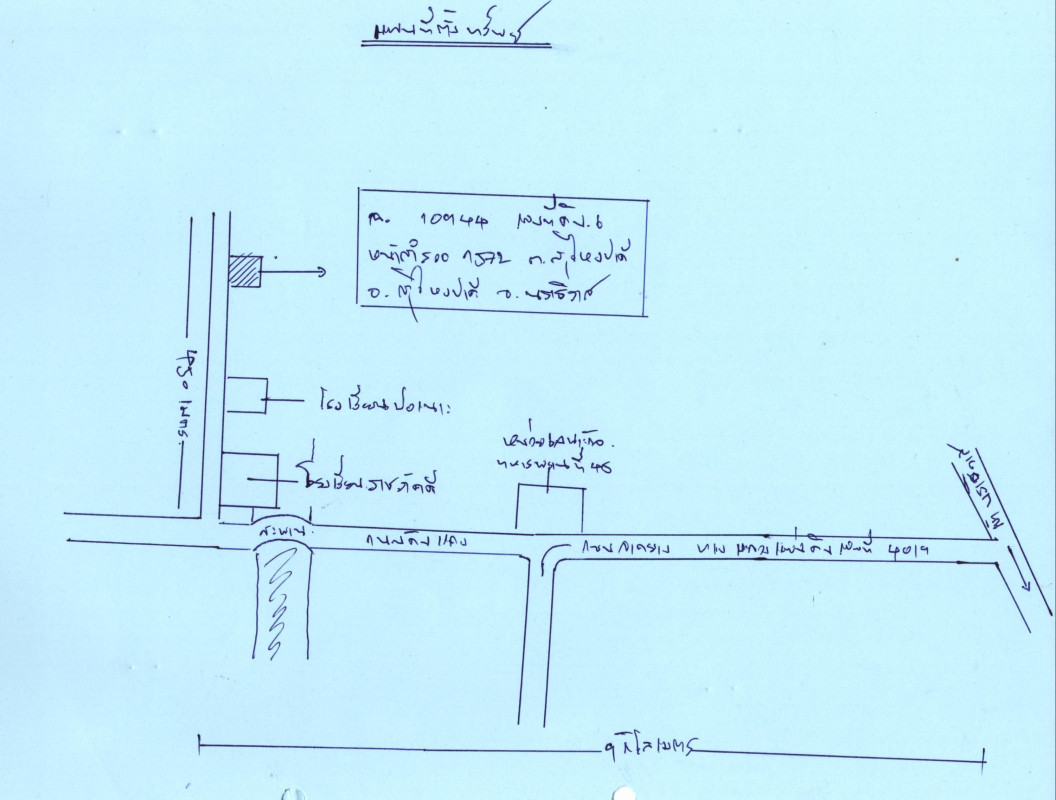 แผนที่ตั้งทรัพย์
ฉ. 10944 เลขที่ดิน 6
หน้าสำรวจ 1572 ต.สุไหงปาดี
อ.สุไหงปาดี จ.นราธิวาส
เมตร
โรงเรียนปอเนาะ
โรงเรียนราษฎร์ภักดี
หน่วยเฉพาะกิจ
ทหารพรานที่ 48
สะพาน
ถนนดินแดง
ถนนลาดยาง ทางหลวงแผ่นดินเลขที่ 4019
ไปนราธิวาส
9 กิโลเมตร